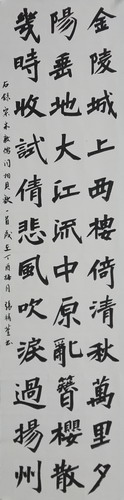 金陵城上西樓倚清秋萬里夕
陽垂地大江流中原亂簪櫻散
幾時收試倩悲風吹淚過揚州
右錄宋朱敦儒詞相見歡一首歲在丁酉梅月